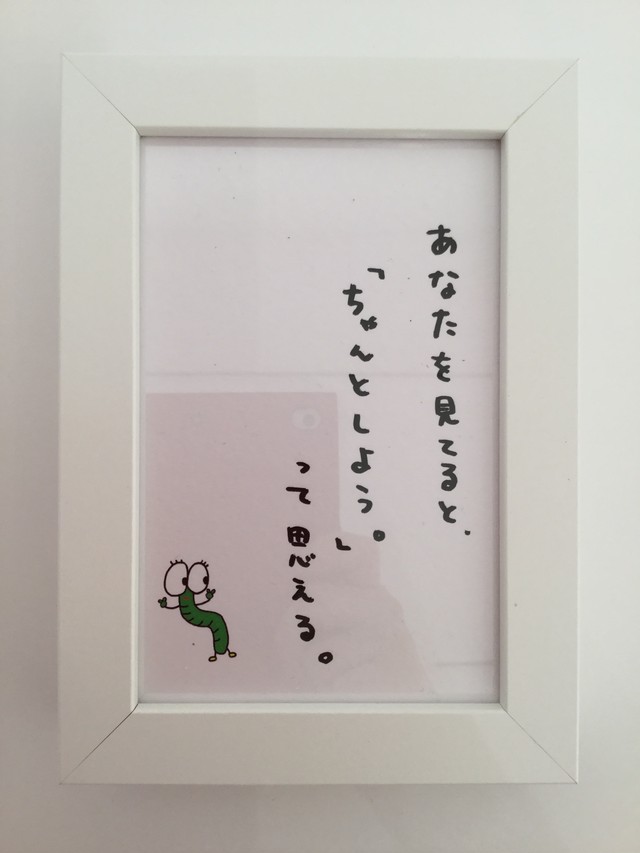 あなたを見てると、
「ちゃんとしよう。」
って思える。